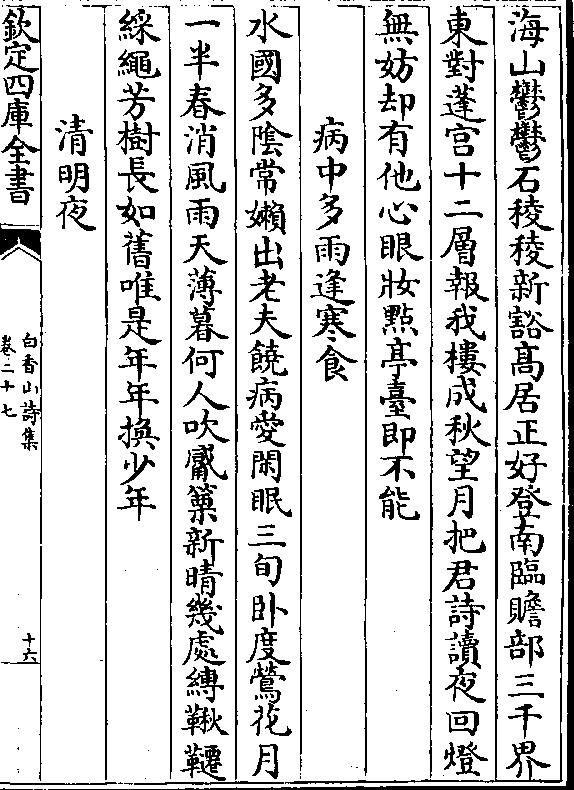 海山鬱鬱石稜稜新豁髙居正好登南臨贍部三千界
東對蓬宫十二層報我樓成秋望月把君詩讀夜回燈
無妨却有他心眼妝㸃亭臺即不能
病中多雨逢寒食
水國多陰常嬾出老夫饒病愛閑眠三旬卧度鶯花月
一半春消風雨天薄暮何人吹觱篥新晴幾處縛鞦韆
綵繩芳樹長如舊唯是年年換少年
清明夜
欽定四庫全書
白香山詩集
卷二十七
十六